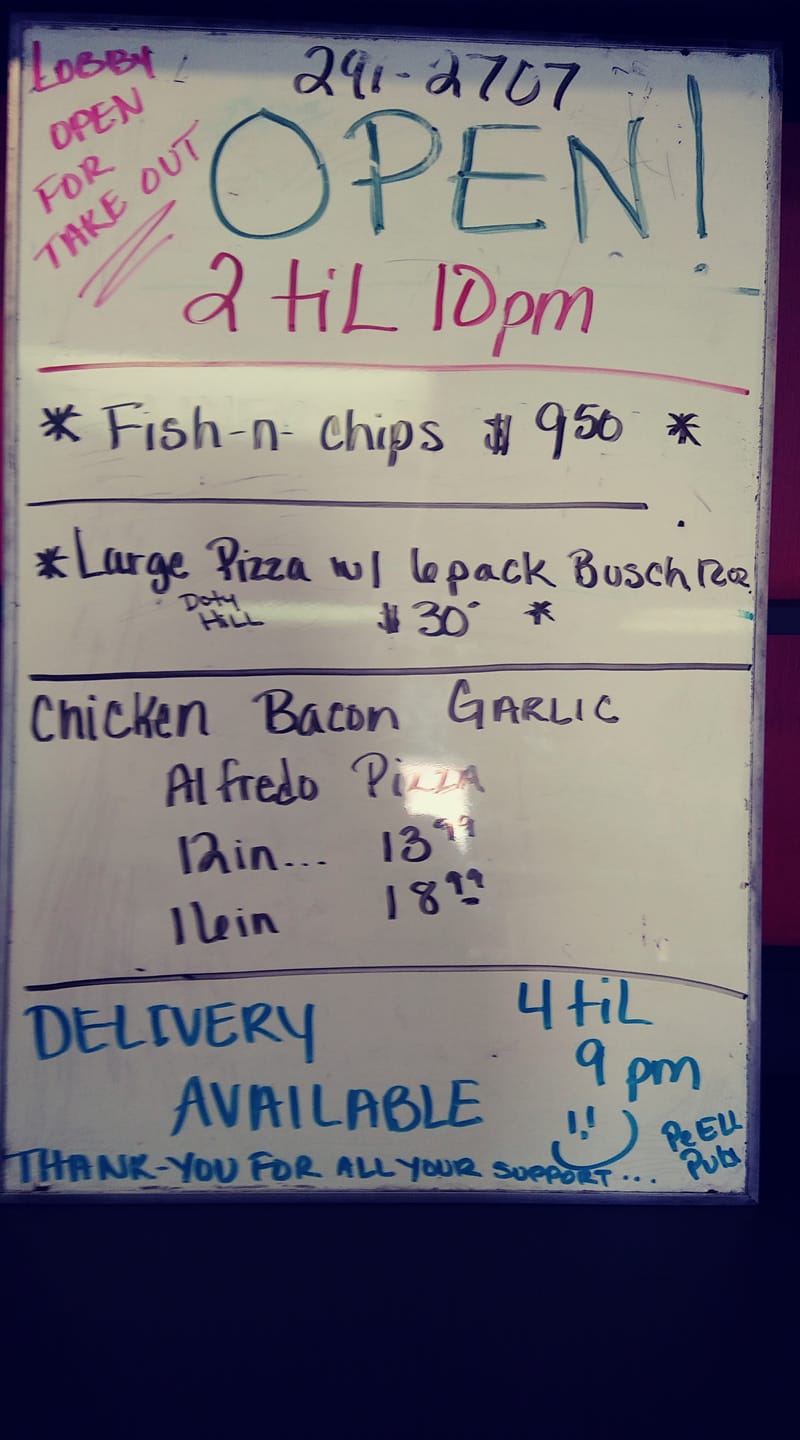 LOBBY
OPEN
FOR
TAKE OUT
291-2707
OPEN!
2 tiL 10pm
* Fish-n- chips $ 950 *
* Large Pizza w/ 6pack Busch 12oz
Doty
HiLL
$ 30 *
Chicken Bacon GARLIC
Alfredo PiZZA
12in... 13 99
16in 18 99
DELIVERY
AVAILABLE
4 tiL
9 pm
THANK-YOU FOR ALL YOUR SUPPORT...
Pe ELL
Pub